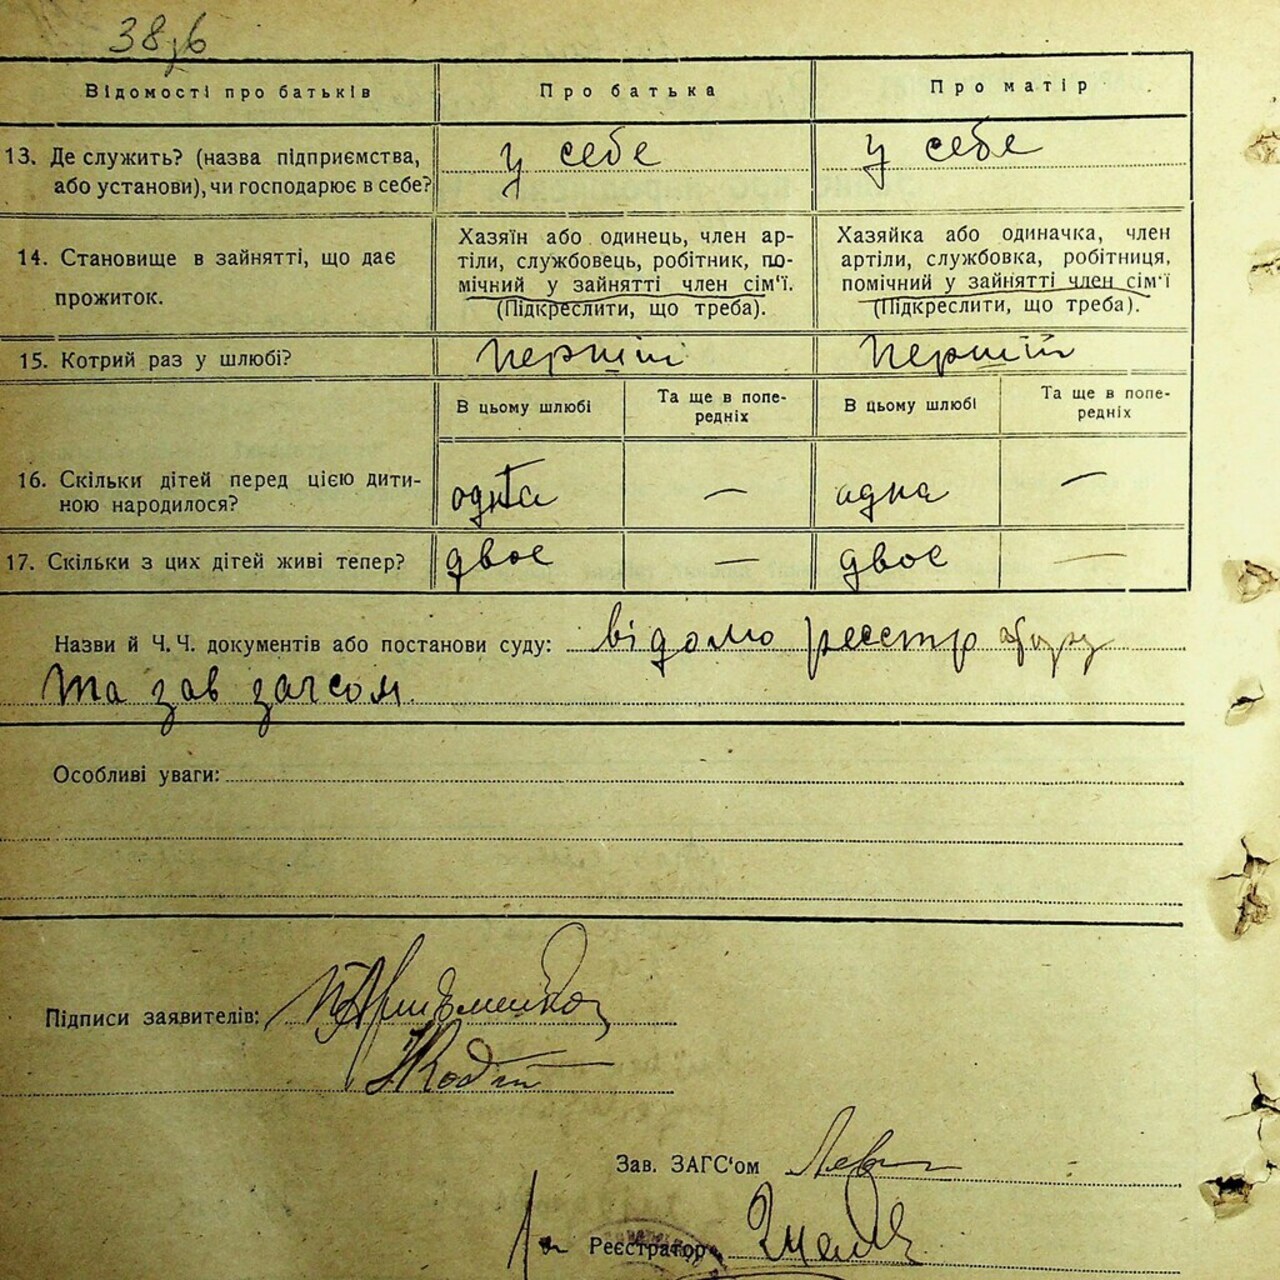 38зв
Відомості про батьків Про батька Про матір
13. Де служить? (назва підприємства, у себе у себе
або установи), чи господарює в себе?
14. Становище в зайнятті, що дає
прожиток.
Хазяїн або одинець, член ар-
тіли, службовець, робітник, по-
мічний у зайнятті член сім'ї.
(Підкреслити, що треба).
Хазяйка або одиначка, член
артіли, службовка, робітниця,
помічний у зайнятті член сім'ї
(Підкреслити, що треба).
15. Котрий раз у шлюбі? перший перший
В цьому шлюбі Та ще в попе-
редніх В цьому шлюбі Та ще в попе-
редніх
16. Скільки дітей перед цією дити-
ною народилося? одна — одна —
17. Скільки з цих дітей живі тепер? двоє — двоє —
Назви й Ч. Ч. документів або постанови суду: відомо реєстр
та зав загсом.
Особливі уваги:
Підписи заявителів:
Зав. ЗАГС'ом
Реєстратор